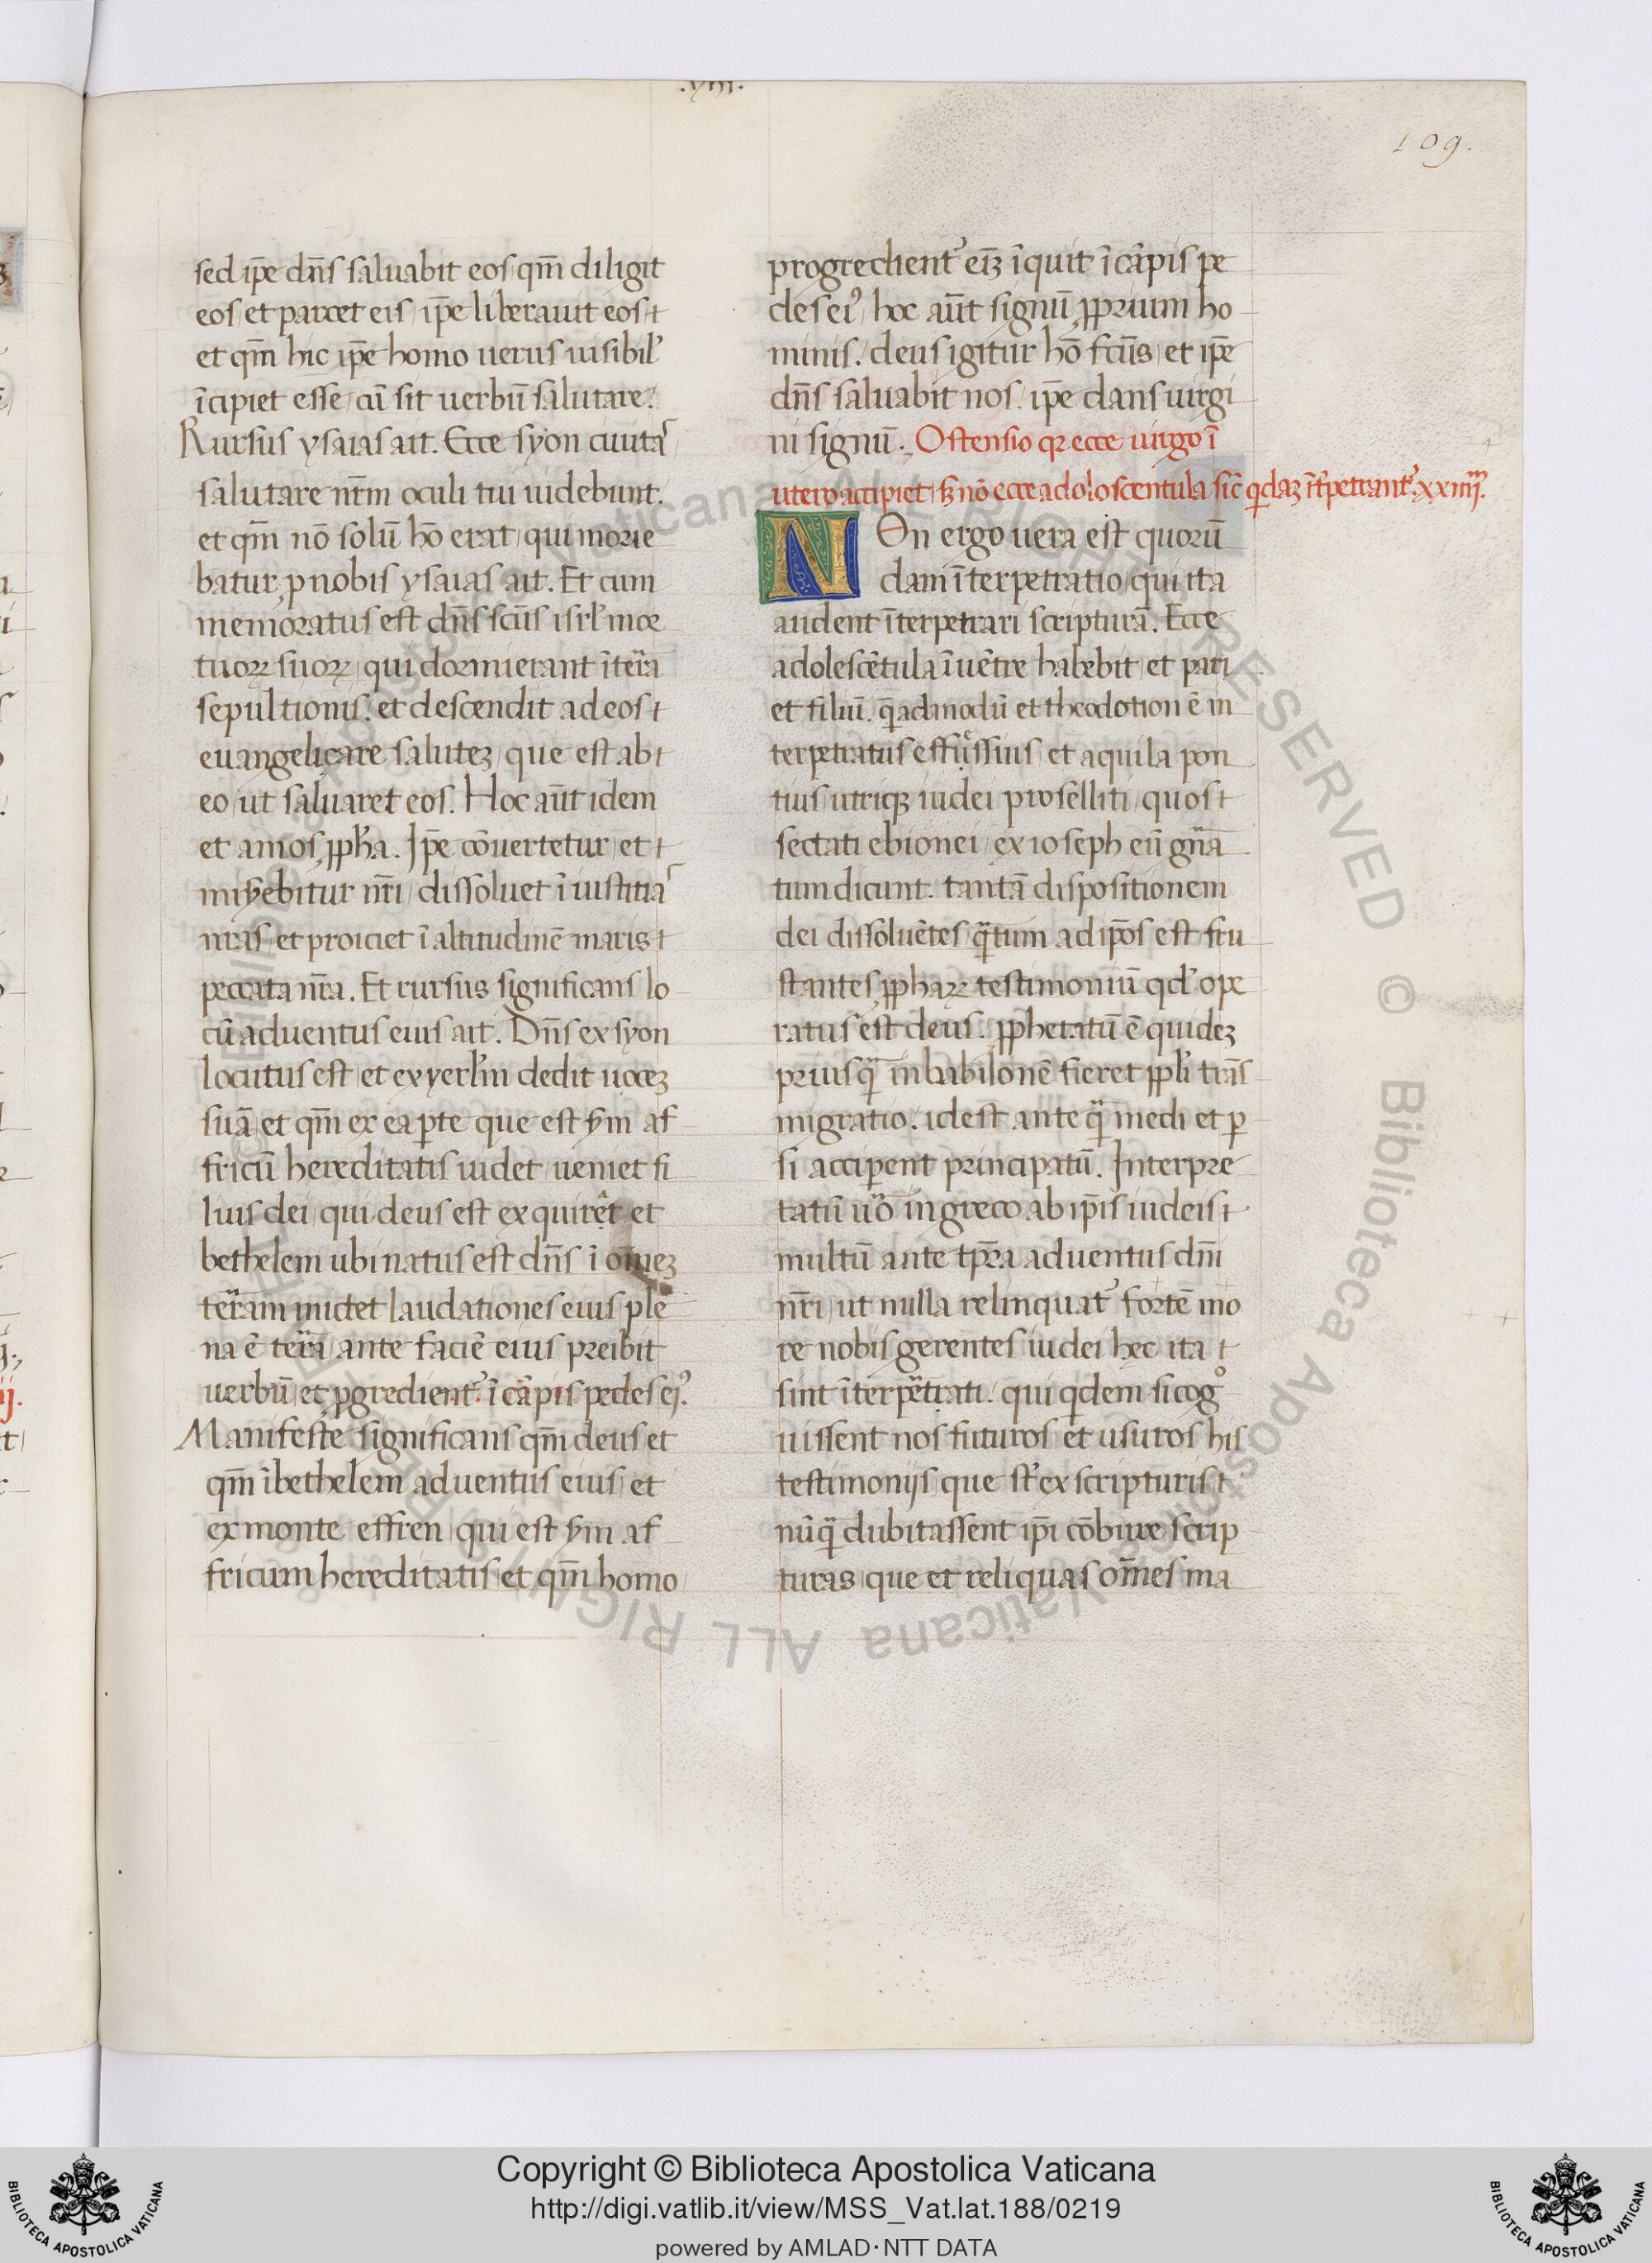 .xiii.
109.
sed ip̄e dn̄s saluabit eos qm̄ diligit
eos et parcet eis ip̄e liberauit eos
et qm̄ hic ip̄e homo uerus uisibil'
īcipiet esse cū sit uerbū salutare.
Rursus ysaias ait. Ecce syon ciuitas
salutare nr̄m oculi tui uidebunt.
et qm̄ nō solū hō erat qui morie
batur p nobis ysaias ait. Et cum
memoratus est dn̄s sc̄us isrl' mor
tuoꝝ suoꝝ qui dormierant ī terra
sepultionis. et descendit ad eos
euangeliçare saluteȝ que est ab
eo ut saluaret eos. Hoc aūt idem
et amos ꝓpha. Ip̄e cōuertetur et
mis̄ebitur nr̄i dissoluet īiustitias
nr̄as et proiciet ī altitudinē maris
peccata nr̄a. Et rursus significans lo
cū aduentus eius ait. Dn̄s ex syon
locutus est et ex yerl'm dedit uoceȝ
suā et qm̄ ex ea ꝑte que est s̄m af
fricū hereditatis iudet ueniet fi
lius dei qui deus est ex quirêt et
bethelem ubi natus est dn̄s ī om̄eȝ
terram mictet laudationes eius ple
na ē terra ante faciē eius preibit
uerbū et ꝓgredient' ī cāpis pedes ei'.
Manifeste significans qm̄ deus et
qm̄ ī bethelem aduentus eius et
ex monte effren qui est s̄m af
fricum hereditatis et qm̄ homo
progredient' eīȝ īquit ī cāpis pe
des ei' hoc aūt signū ꝓprium ho
minis. deus igitur hō fc̄us et ip̄e
dn̄s saluabit nos. ip̄e dans uirgi
ni signū. Ostensio qꝛ ecce uirgo ī
utero accipiet sȝ nō ecce adoloscentula sic̄ qdaȝ īt'petrant'. xxiiij.
NOn ergo uera est quorū
dam īterpetratio qui ita
audent īterpetrari scripturā. Ecce
adolescētula ī uētre habebit et pari
et filiū. q̄admodū et theodotion ē in
terpetratus effussius et aquila pon
tius utriqȝ iudei proselliti quos
sectati ebionei ex ioseph eū gn̄a
tum dicunt. tantā dispositionem
dei dissoluētes qᵃtum ad ip̄os est fru
stantes ꝓphaꝝ testimoniū qd' ope
ratus est deus. ꝓphetatū ē quideȝ
priusqᵃ in babilonē fieret ppl'i trās
migratio. idest anteqᵃ medi et ꝑ
si acciꝑent principatū. Interpre
tatū uº in greco ab ip̄is iudeis
multū ante tp̄ra aduentus dn̄i
nr̄i ut nulla relinquat' fortē mo
re nobis gerentes iudei hec ita
sint īterpetrati. qui qdem si cogº
uissent nos futuros et usuros his
testimonijs que st' ex scripturis
nūqᵃ dubitassent ip̄i cōbure scrip
turas que et reliquas om̄es ma
Copyright © Biblioteca Apostolica Vaticana
http://digi.vatlib.it/view/MSS_Vat.lat.188/0219
powered by AMLAD·NTT DATA
BIBLIOTECA APOSTOLICA VATICANA
BIBLIOTECA APOSTOLICA VATICANA